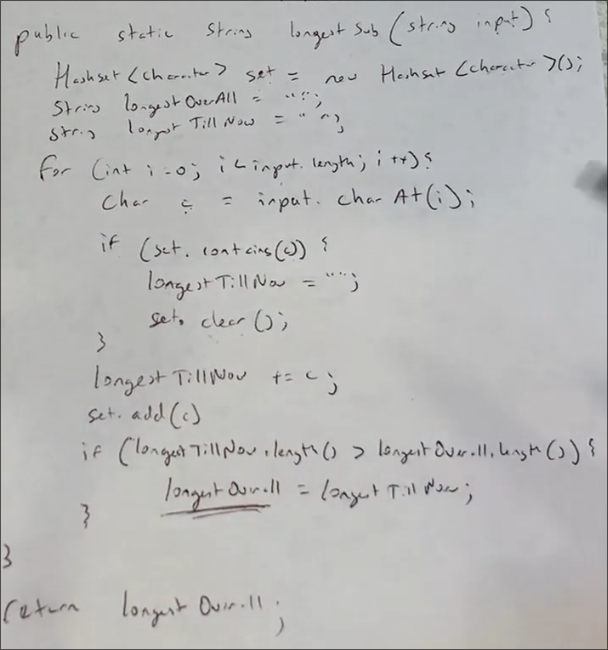 public static String longestSub (string input) {
Hashset <Character> set = new Hashset <character>();
String longestOverAll = "";
String longestTillNow = "";
for (int i=0; i<input.length; i++) {
char c = input.charAt(i);
if (set.contains(c)) {
longestTillNow = "";
set.clear();
}
longestTillNow += c;
set.add(c)
if (longestTillNow.length() > longestOverall.length()) {
longestOverall = longestTillNow;
}
}
return longestOverall;